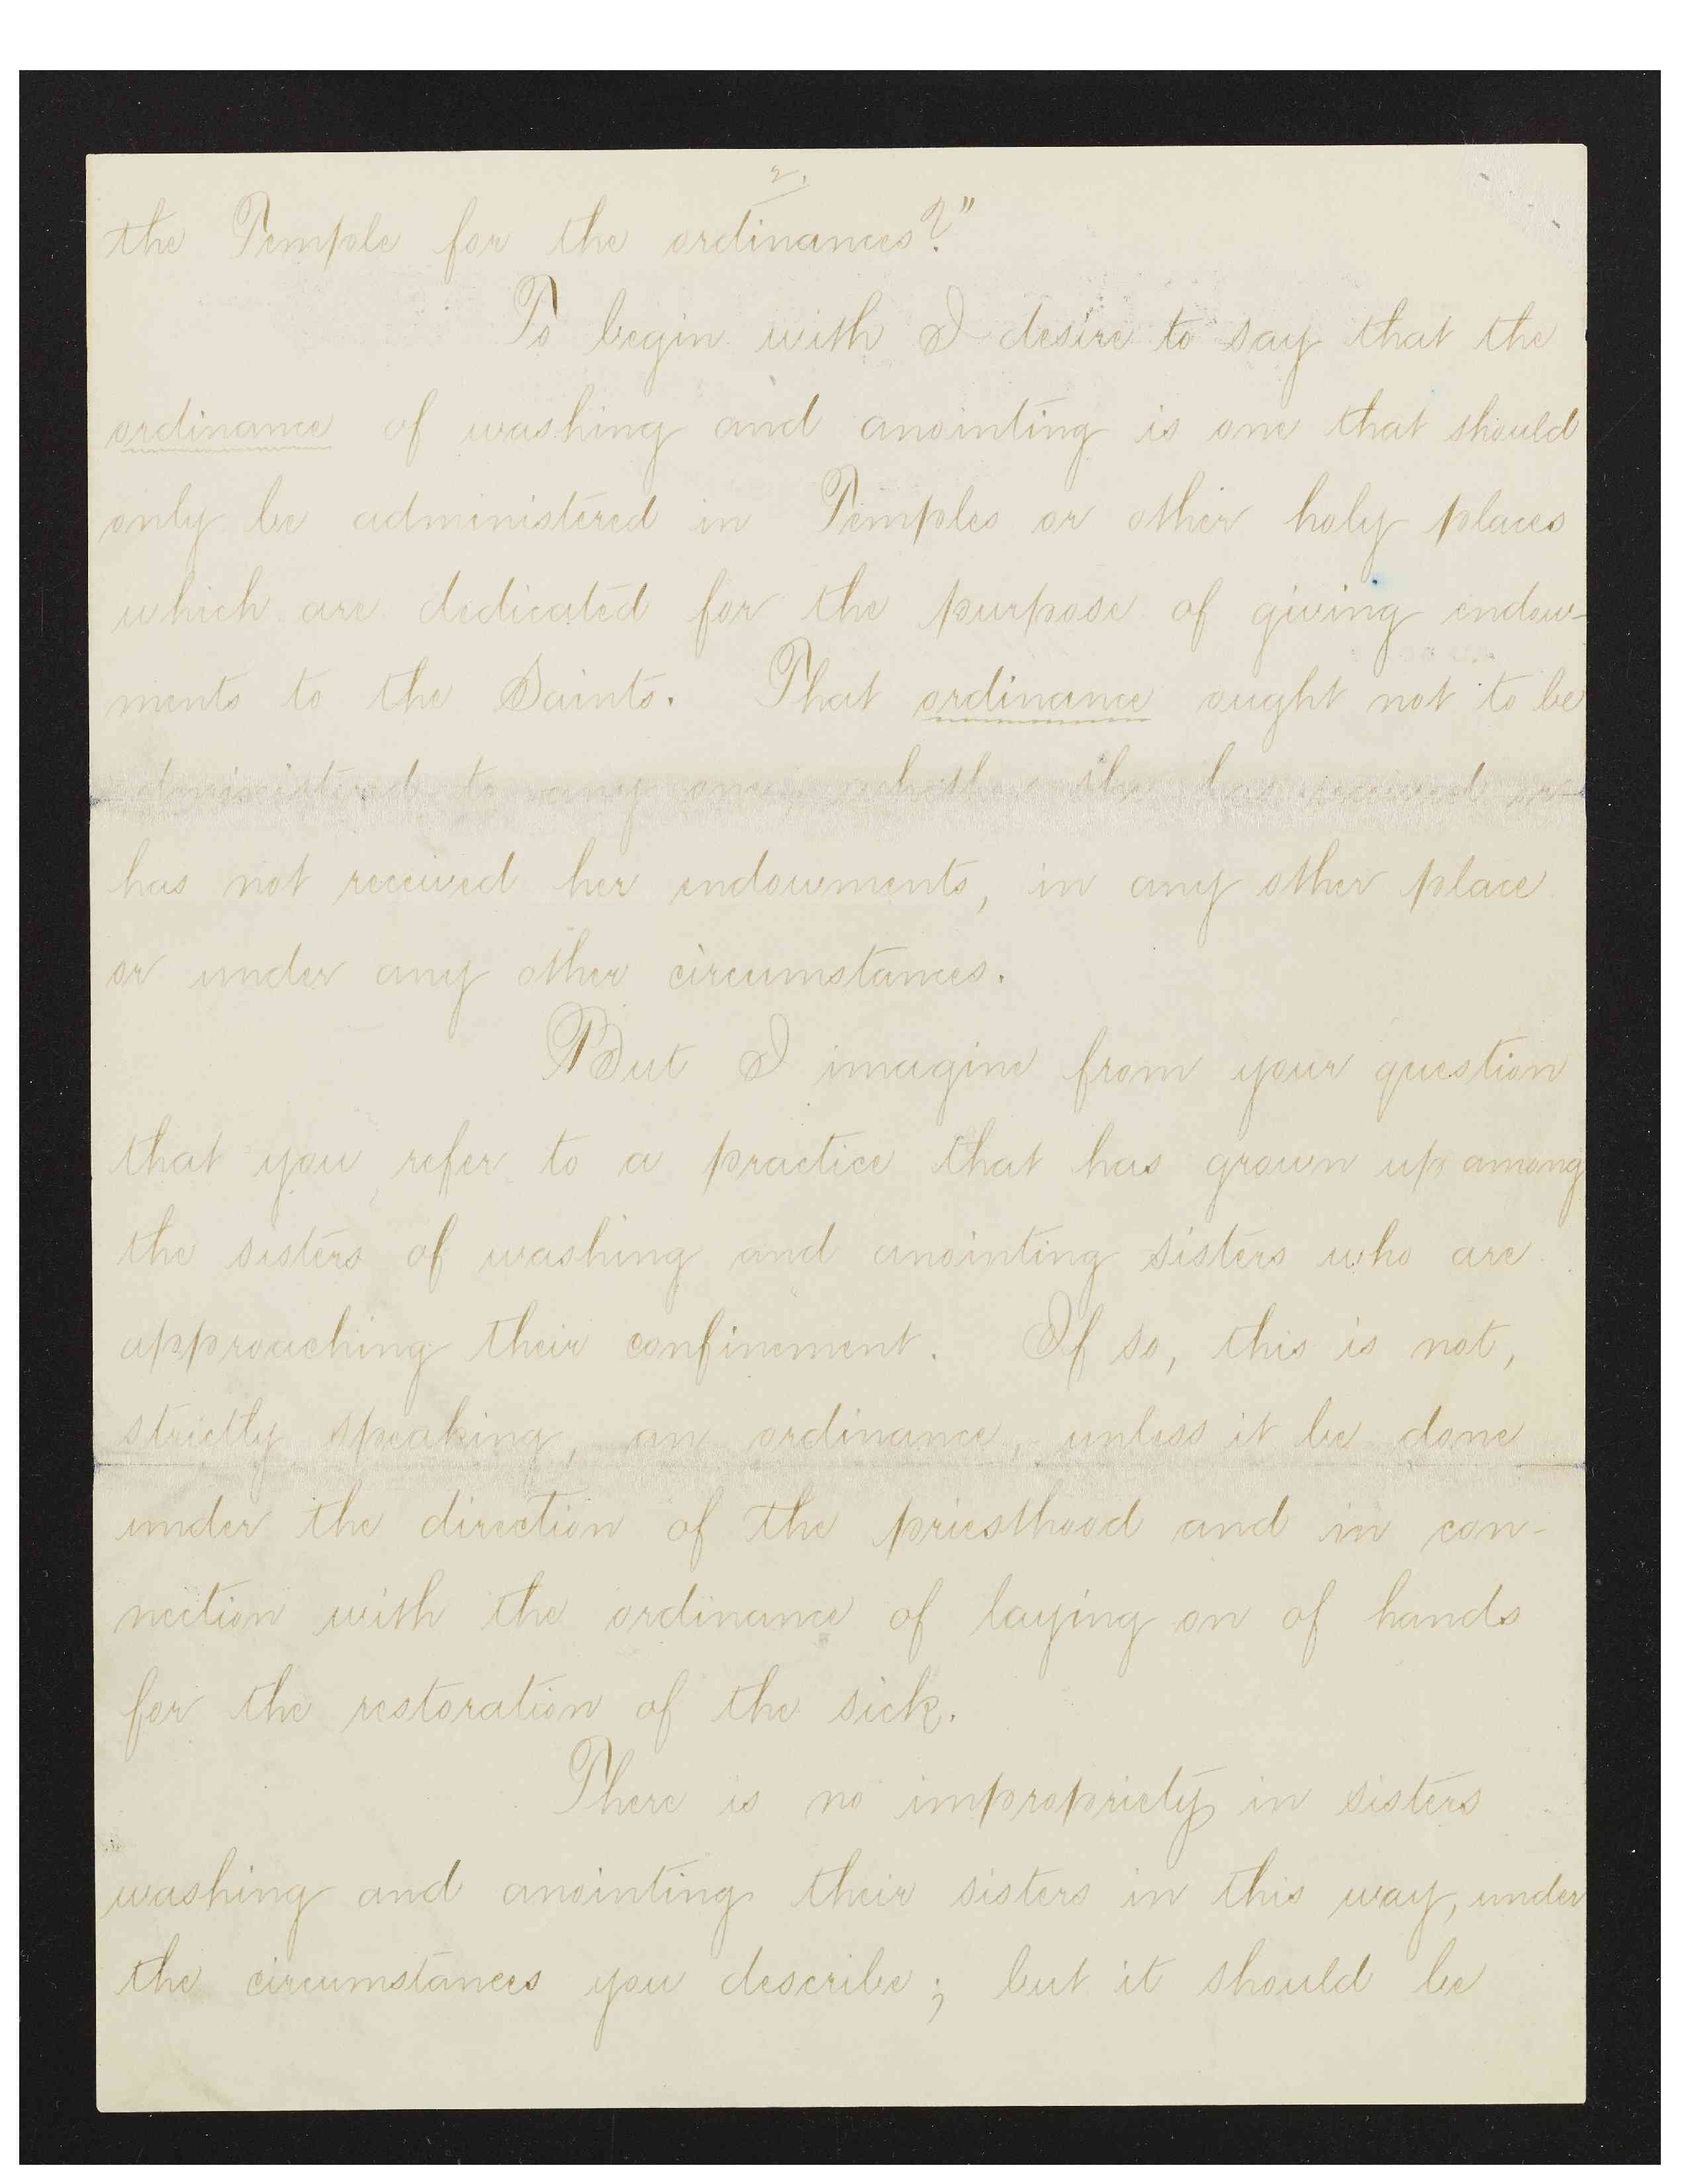 2.
the Temple for the ordinances?"
To begin with I desire to say that the
ordinance of washing and anointing is one that should
only be administered in Temples or other holy places
which are dedicated for the purpose of giving endow-
ments to the Saints. That ordinance ought not to be
administered to any one, whether she has received or
has not received her endowments, in any other place
or under any other circumstances.
But I imagine from your question
that you refer to a practice that has grown up among
the sisters of washing and anointing sisters who are
approaching their confinement. If so, this is not,
strictly speaking, an ordinance, unless it be done
under the direction of the priesthood and in con-
nection with the ordinance of laying on of hands
for the restoration of the sick.
There is no impropriety in sisters
washing and anointing their sisters in this way, under
the circumstances you describe; but it should be